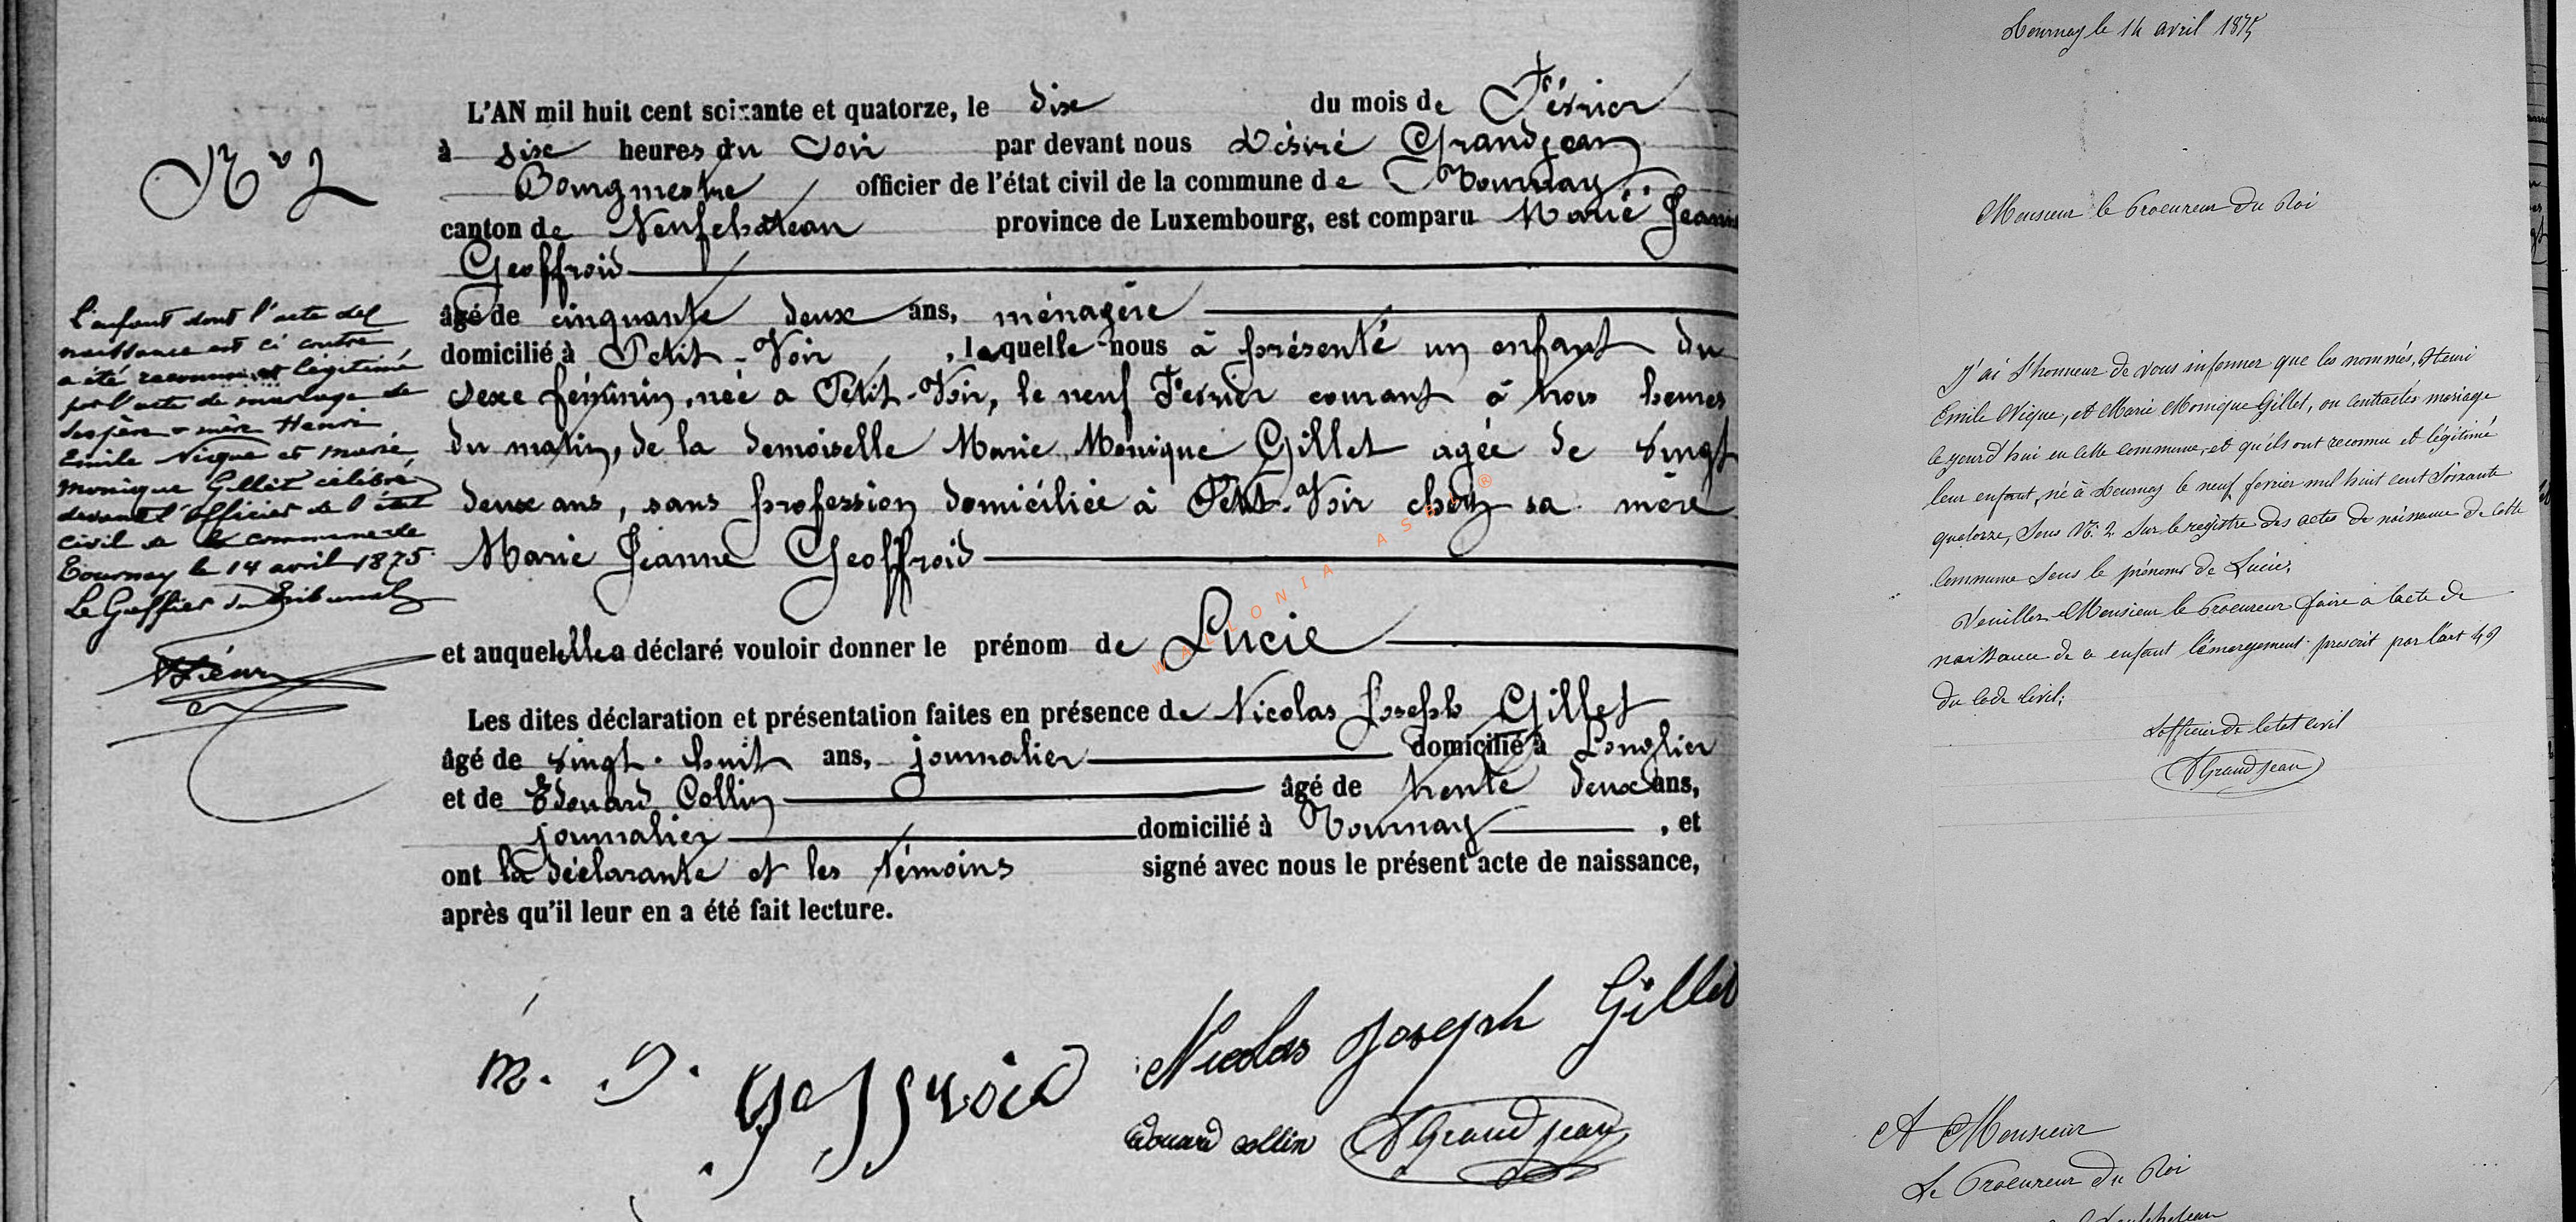 N° 2
L'enfant dont l'acte de
naissance est ci contre
a été reconnu et légitimé
par l'acte de mariage de
ses père & mère Henri
Emile Nique et Marie
Monique Gillet célébré
devant l'officier de l'état
civil de la commune de
Tournay le 14 avril 1875
Le Greffier du Tribunal
L'AN mil huit cent soixante et quatorze, le dix du mois de Février
à six heures du Soir par devant nous Désiré Grandjean
Bourgmestre officier de l'état civil de la commune de Tournay
canton de Neufchâteau province de Luxembourg, est comparu Marie Jeanne
Geoffroid
âgé de cinquante deux ans, ménagère
domicilié à Petit-Voir, laquelle nous à présenté un enfant du
sexe féminin, née a Petit-Voir, le neuf Février courant à trois heures
du matin, de la demoiselle Marie Monique Gillet agée de vingt
deux ans, sans profession domiciliée à Petit-Voir chez sa mère
Marie Jeanne Geoffroid
et auquelle a déclaré vouloir donner le prénom de Lucie
Les dites déclaration et présentation faites en présence de Nicolas Joseph Gillet
âgé de vingt-huit ans, journalier domicilié à Longlier
et de Edouard Collin âgé de trente deux ans,
journalier domicilié à Tournay, et
ont la déclarante et les témoins signé avec nous le présent acte de naissance,
après qu'il leur en a été fait lecture.
m. J. Geffroid
Nicolas Joseph Gillet
Edouard Collin DGrandjean
WALLONIA ASBL ®
Tournay le 14 avril 1875
Monsieur le Procureur du Roi
J'ai l'honneur de vous informer que les nommés, Henri
Emile Nique, et Marie Monique Gillet, on contractés mariage
cejourd'hui en cette commune, et qu'ils ont reconnu et légitimé
leur enfant, né à Tournay le neuf fevrier mil huit cent Soixante
quatorze, Sous N°. 2 Sur le registre des actes de naissance de cette
Commune Sous le prénoms de Lucie,
Veuillez Monsieur le Procureur faire a l'acte de
naissance de ce enfant l'émargement prescrit par l'art 49
du code Civil;
L'officier de l'etat civil
DGrandjean
A Monsieur
Le Procureur du Roi
Neufchateau